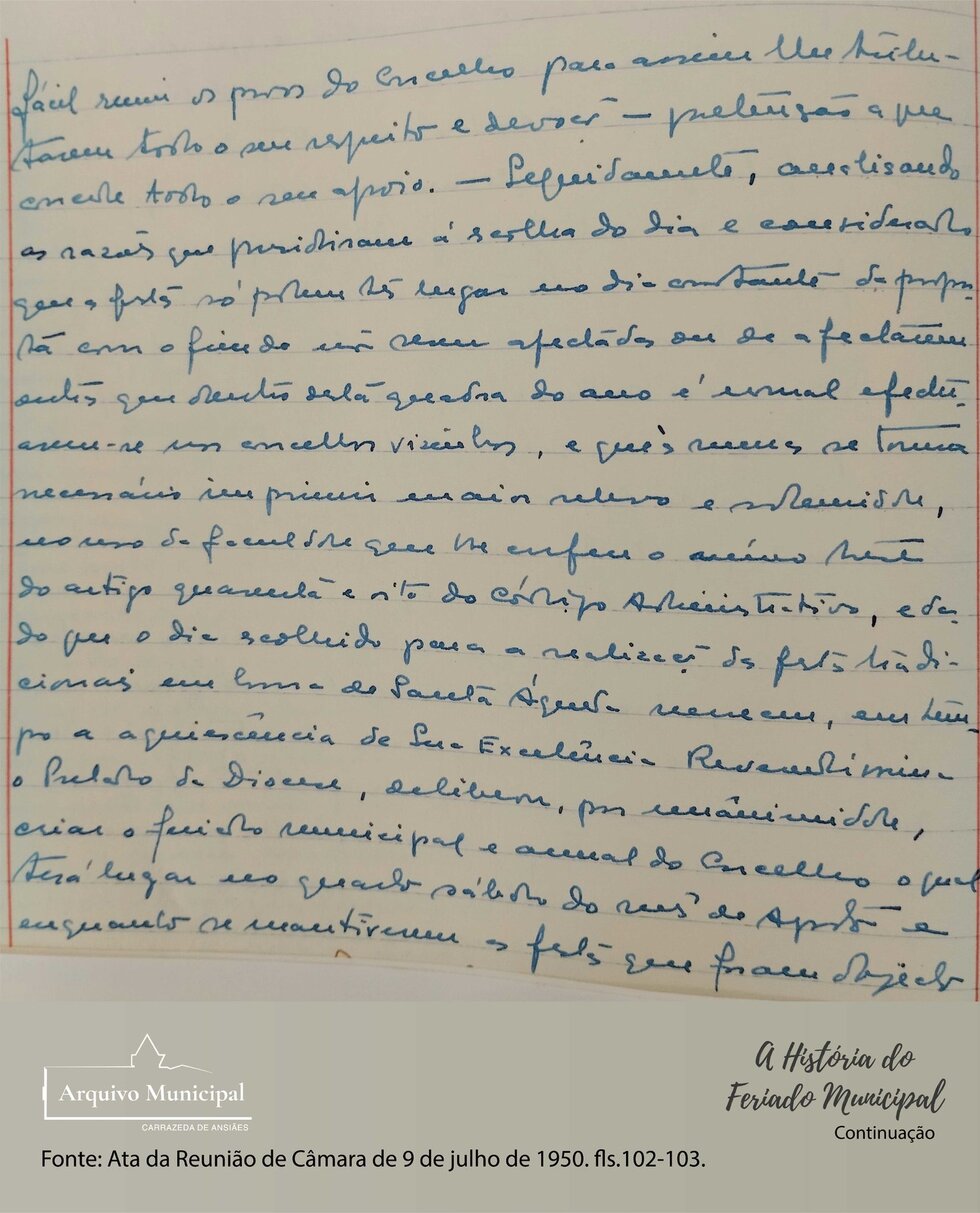 fácil reunir os povos do Concelho para assim lhe tribu-
tarem todo o seu respeito e devoção — pretensão a que
concede todo o seu apoio. — Seguidamente, analisando
as razões que presidiram á escolha do dia e considerando
que as festas só podem ter lugar no dia constante da propos-
ta com o fim de não serem afectadas ou de afectarem
outras que dentro desta quadra do ano é normal efectu-
arem-se nos concelhos visinhos, e que às mesmas se torna
necessário imprimir maior relevo e solenidade,
no uso da faculdade que lhe confere o número
do artigo quarenta e oito do Código Administrativo, e da-
do que o dia escolhido para a realização das festas tradi-
cionais em honra de Santa Águeda merecem, em tem-
po a aquiescência de Sua Excelência Reverendíssima
o Prelado da Diocese, deliberou, por unânimidade,
criar o feriado municipal e anual do Concelho o qual
terá lugar no quarto sábado do mês de Agosto e
enquanto se mantiverem as festas que foram objecto
Arquivo Municipal
CARRAZEDA DE ANSIÃES
A História do
Feriado Municipal
Continuação
Fonte: Ata da Reunião de Câmara de 9 de julho de 1950. fls.102-103.